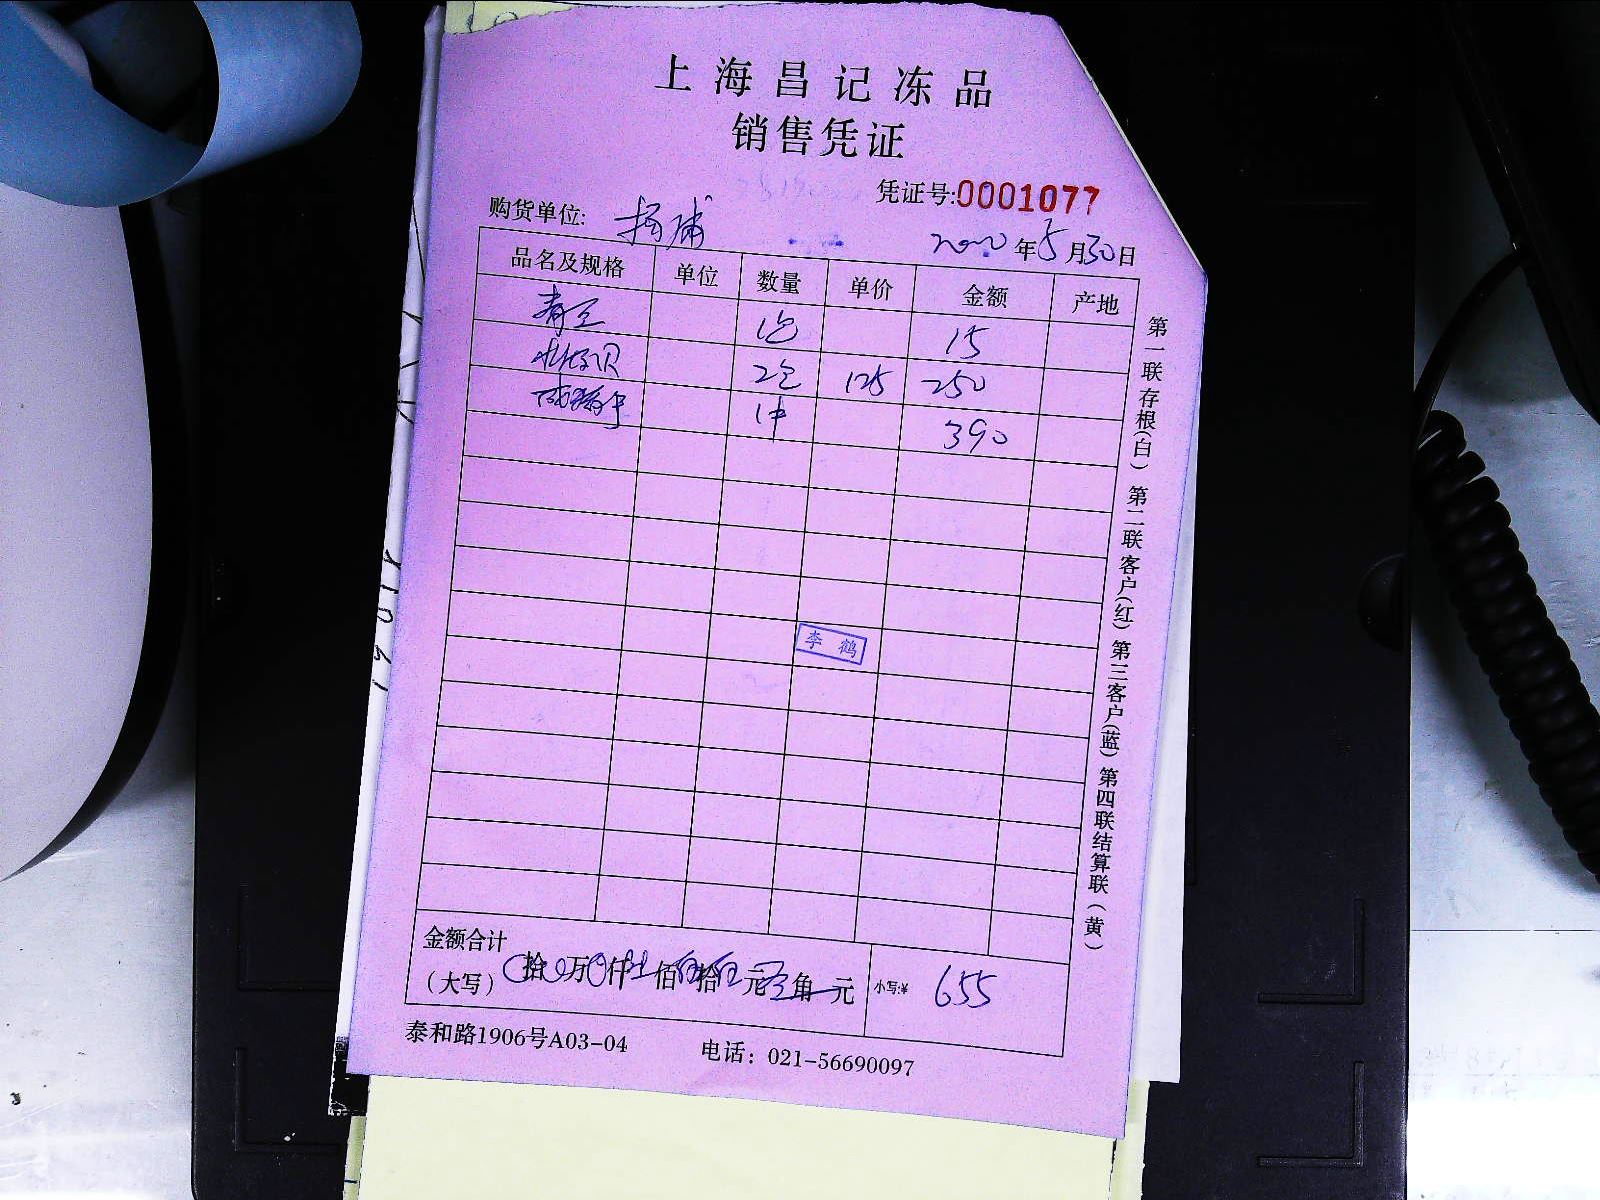 上海昌记冻品
销售凭证
凭证号:0001077
购货单位: 杨浦 2020年5月30日
品名及规格 单位 数量 单价 金额 产地
青豆 1包 15
2包 125 250
1件 390
李鹤
金额合计
(大写) 拾万仟佰拾元角元 小写:¥ 655
泰和路1906号A03-04 电话: 021-56690097
第一联存根(白) 第二联客户(红) 第三客户(蓝) 第四联结算联(黄)